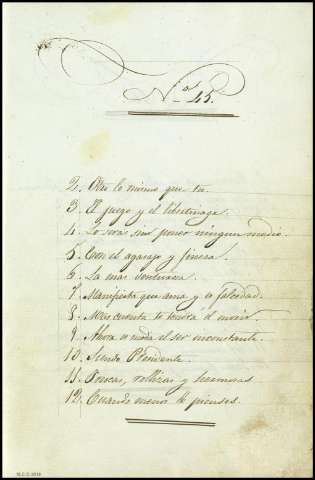 No. 45.
2. Otro lo mismo que tu.
3. El juego y el libertinage.
4. Lo será sin poner ningun medio.
5. Con el agasajo y fineza.
6. La mas venturosa
7. Manifiesta que ama y es falsedad.
8. Mas cuenta te tendrá el morir.
9. Ahora es moda el ser inconstante.
10. Siendo Presidente.
11. Frescas, rollizas y hermosas
12. Cuando menos lo pienses.